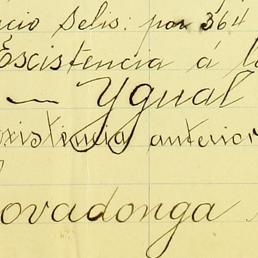 cio Selis: por 364
Escistencia á l
— Ygual
oxistencia anterior
ovadonga